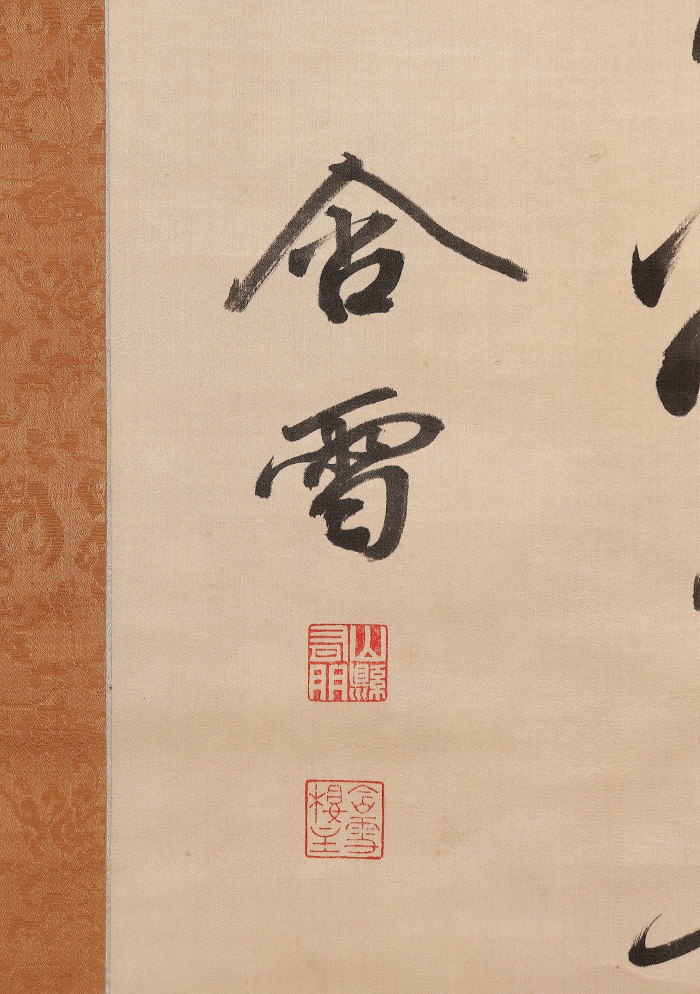 含雪
山縣有朋
含雪樓主